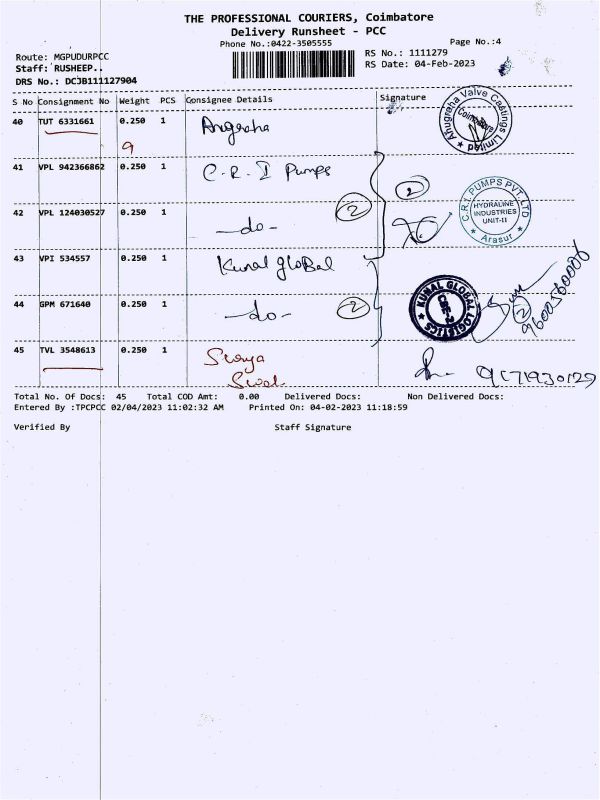 THE PROFESSIONAL COURIERS, Coimbatore
Delivery Runsheet - PCC
Phone No.:0422-3505555
Page No.:4
Route: MGPUDURPCC
RS No.: 1111279
Staff: RUSHEEP..
RS Date: 04-Feb-2023
DRS No.: DCJB111127904
S No Consignment No Weight PCS Consignee Details Signature
40 TUT 6331661 0.250 1 Anugraha
Anugraha Valve Castings Limited
Coimbatore
9
41 VPL 942366862 0.250 1 C.R.I Pumps
2
C.R.I. PUMPS PVT. LTD
HYDRALINE
INDUSTRIES
UNIT-II
Arasur
42 VPL 124030527 0.250 1 -do- 2
43 VPI 534557 0.250 1 Kunal gloBal
KUNAL GLOBAL LOGISTICS
2
9600560006
44 GPM 671640 0.250 1 -do- 2
45 TVL 3548613 0.250 1 Surya
9171930129
Total No. Of Docs: 45 Total COD Amt: 0.00 Delivered Docs: Non Delivered Docs:
Entered By :TPCPCC 02/04/2023 11:02:32 AM Printed On: 04-02-2023 11:18:59
Verified By Staff Signature